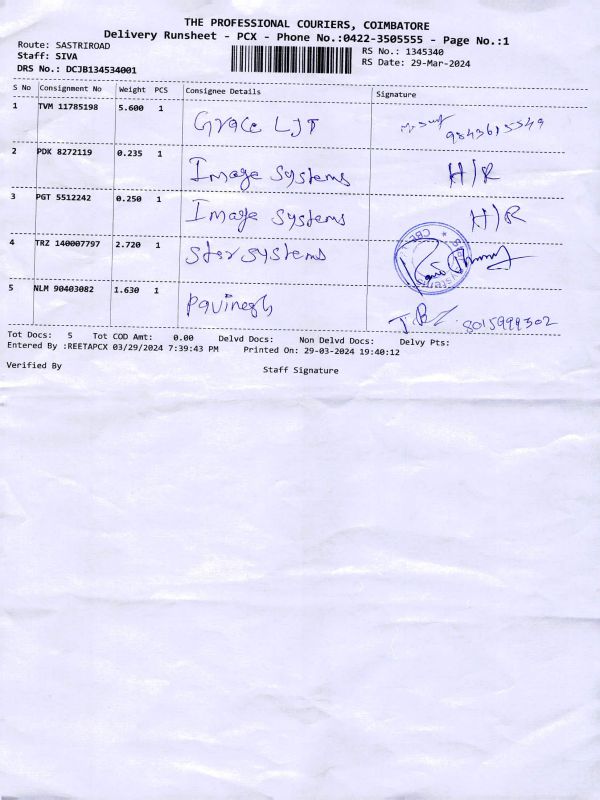 THE PROFESSIONAL COURIERS, COIMBATORE
Delivery Runsheet - PCX - Phone No.:0422-3505555 - Page No.:1
Route: SASTRIROAD RS No.: 1345340
Staff: SIVA RS Date: 29-Mar-2024
DRS No.: DCJB134534001
S No Consignment No Weight PCS Consignee Details Signature
1 TVM 11785198 5.600 1 Grace LJT 9843615549
2 PDK 8272119 0.235 1 Image Systems H/R
3 PGT 5512242 0.250 1 Image Systems H/R
4 TRZ 140007797 2.720 1 Star Systems
5 NLM 90403082 1.630 1 Pavinesh 8015999302
Tot Docs: 5 Tot COD Amt: 0.00 Delvd Docs: Non Delvd Docs: Delvy Pts:
Entered By :REETAPCX 03/29/2024 7:39:43 PM Printed On: 29-03-2024 19:40:12
Verified By Staff Signature